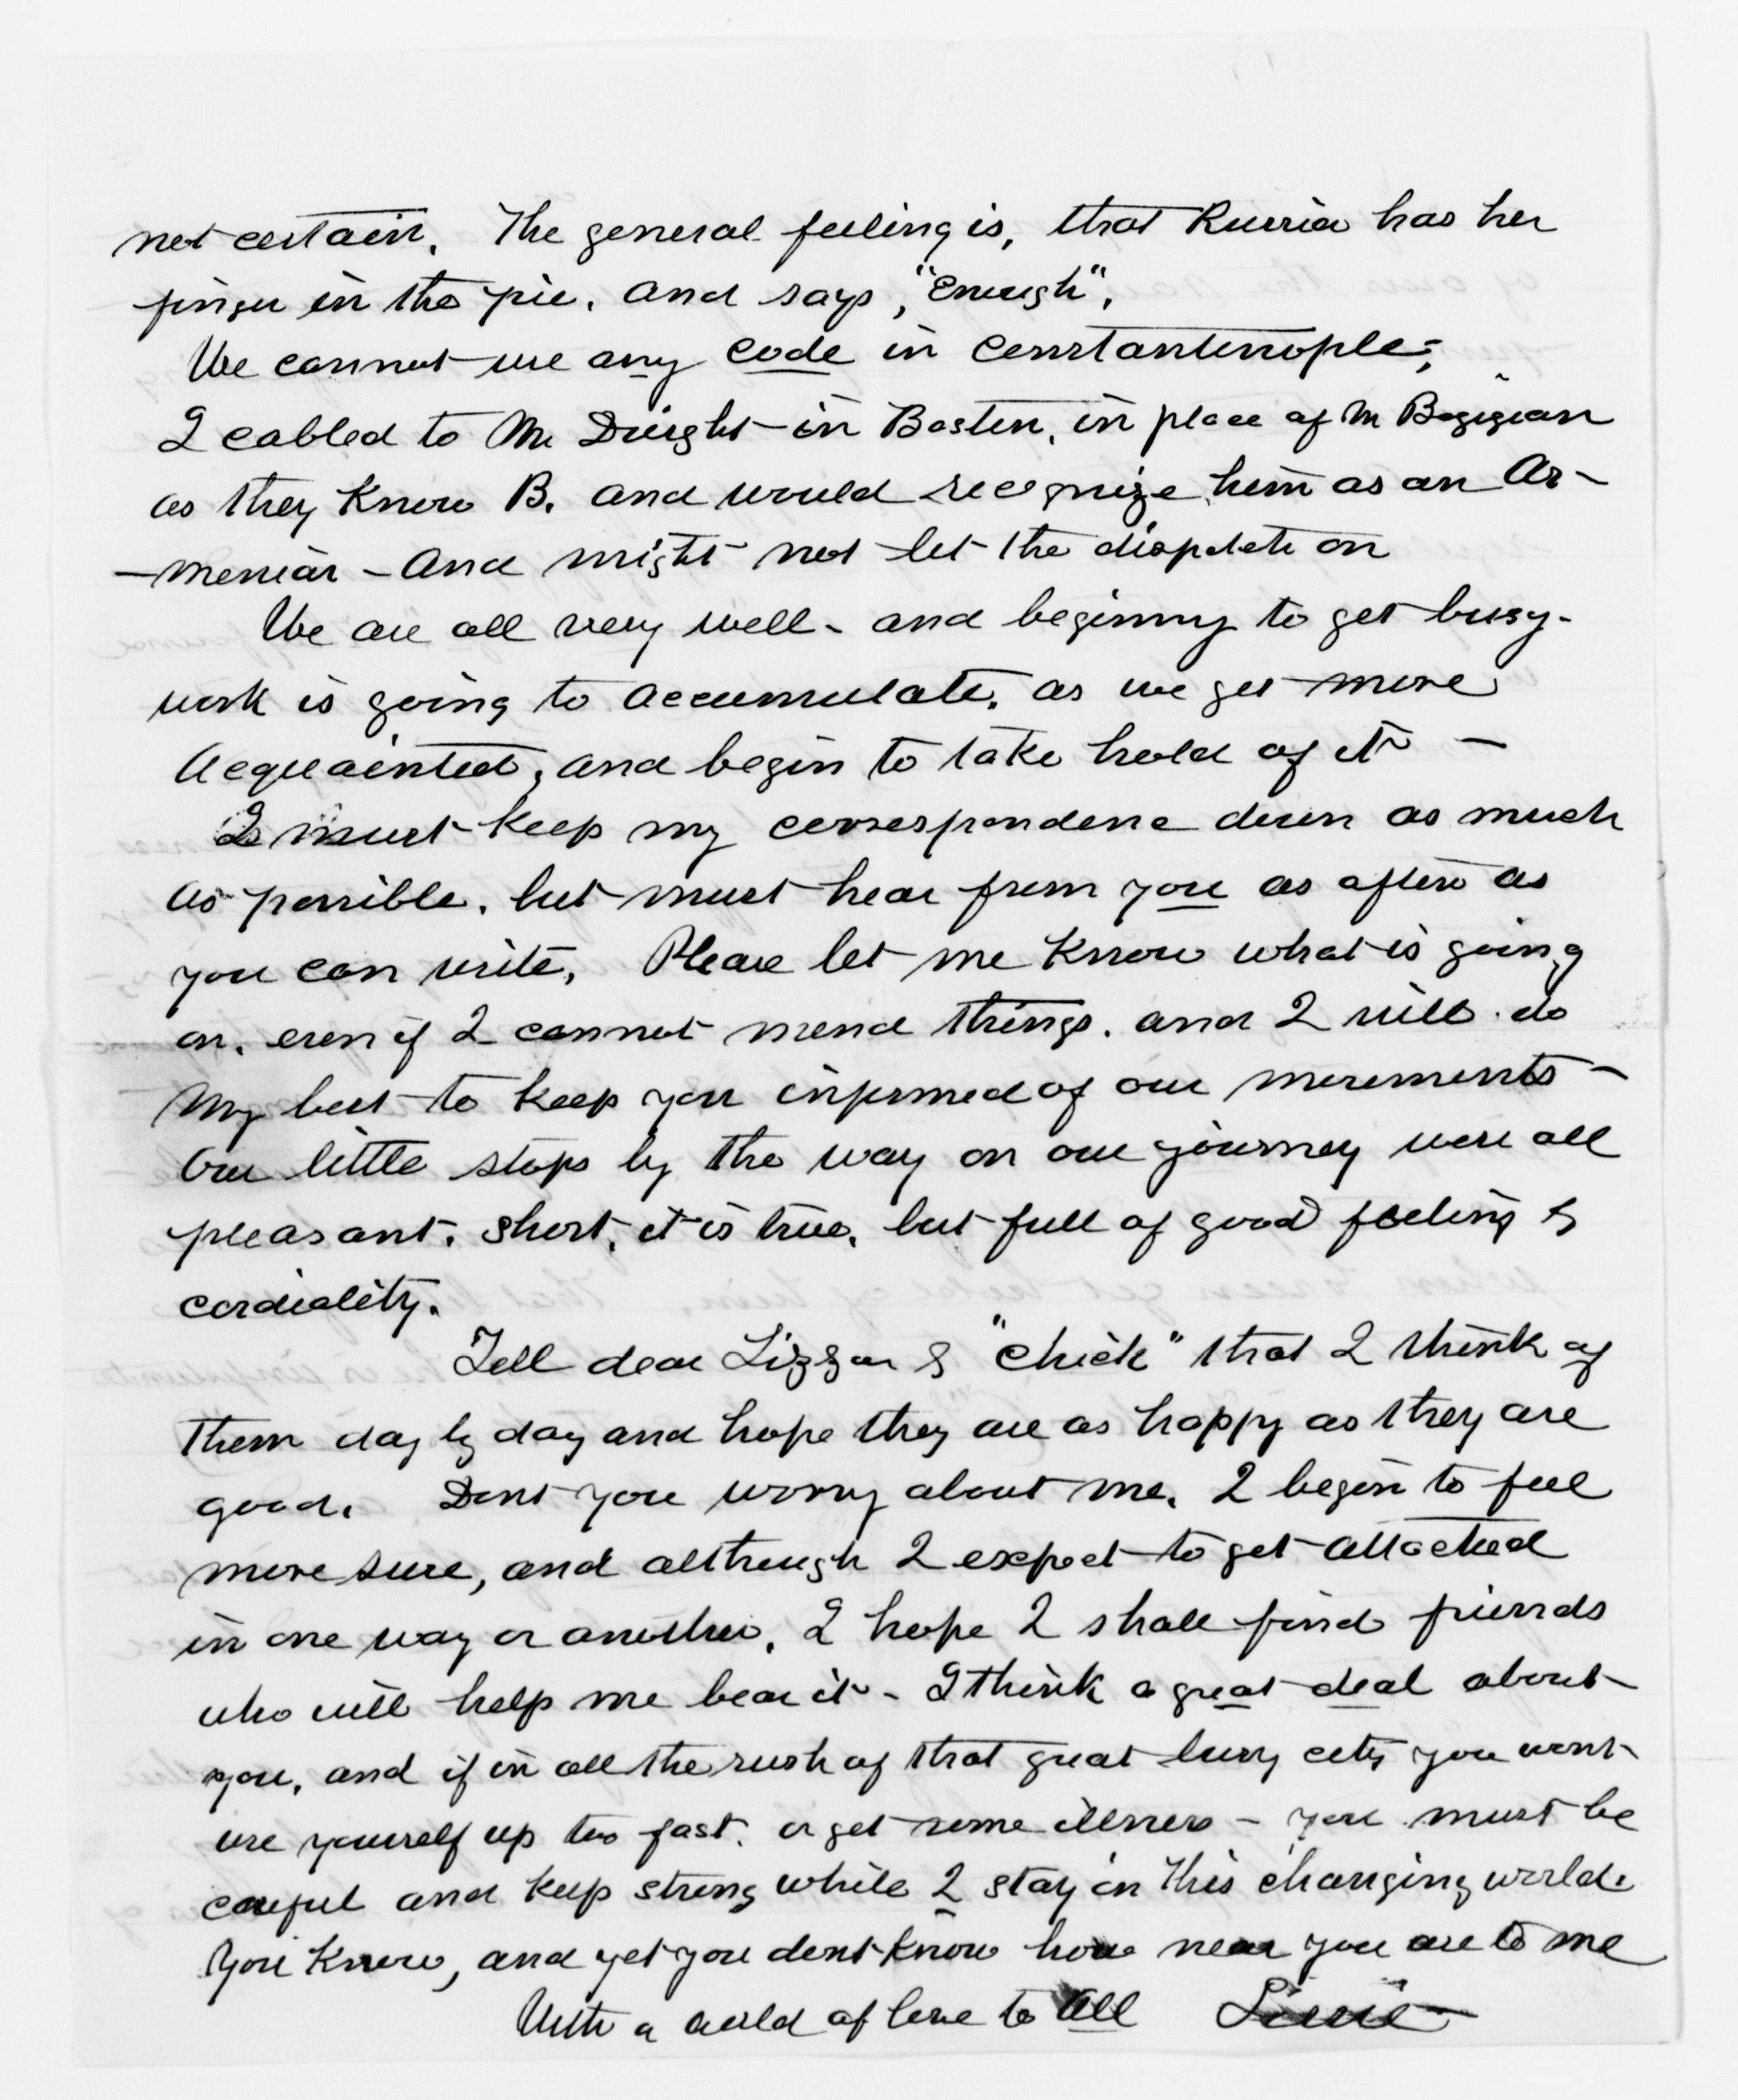 not certain. The general feeling is, that Russia has her
finger in the pie. and says, "Enough".
We cannot use any code in Constantinople;
I cabled to Mr Dwight in Boston, in place of Mr Bogigian
as they know B. and would recognize him as an Ar-
-menian - And might not let the dispatch on
We are all very well - and beginning to get busy -
work is going to accumulate, as we get more
acquainted, and begin to take hold of it -
I must keep my correspondence down as much
as possible. but must hear from you as often as
you can write. Please let me know what is going
on. even if I cannot mend things. and I will do
my best to keep you informed of our movements -
Our little stops by the way on our journey were all
pleasant. short, it is true, but full of good feeling &
cordiality.
Tell dear Lizzie & "Chick" that I think of
them day by day and hope they are as happy as they are
good. Dont you worry about me. I begin to feel
more sure, and although I expect to get attacked
in one way or another, I hope I shall find friends
who will help me bear it - I think a great deal about
you, and if in all the rush of that great busy city you wont
use yourself up too fast. or get some illness - you must be
careful and keep strong while I stay in this changing world.
You know, and yet you dont know how near you are to me
With a world of love to all